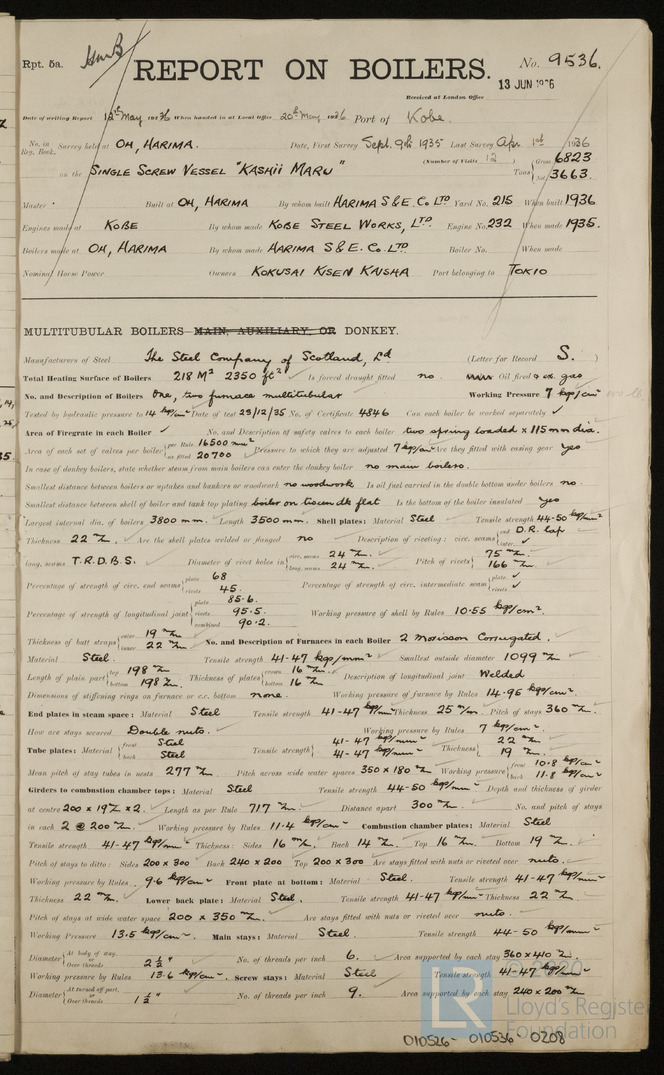 Rpt. 5a.
REPORT ON BOILERS.
No. 9536.
13 JUN 1936
Received at London Office
Date of writing Report 12th May 1936 When handed in at Local Office 20th May 1936 Port of Kobe.
No. in Reg. Book. Survey held at OH, HARIMA. Date, First Survey Sept. 9th 1935 Last Survey Apr 1st 1936
(Number of Visits 12 )
on the SINGLE SCREW VESSEL "KASHII MARU" Tons { Gross 6823 Net 3663.
Master Built at OH, HARIMA By whom built HARIMA S & E. Co LTD Yard No. 215 When built 1936
Engines made at KOBE By whom made KOBE STEEL WORKS, LTD. Engine No. 232 When made 1935.
Boilers made at OH, HARIMA By whom made HARIMA S & E. Co. LTD Boiler No. When made
Nominal Horse Power Owners KOKUSAI KISEN KAISHA Port belonging to TOKIO
MULTITUBULAR BOILERS MAIN, AUXILIARY, OR DONKEY.
Manufacturers of Steel The Steel Company of Scotland, Ld (Letter for Record S. )
Total Heating Surface of Boilers 218 M² 2350 ft² Is forced draught fitted no. Oil fired & ex. gas
No. and Description of Boilers One, two furnace multitubular Working Pressure 7 kgp/cm²
Tested by hydraulic pressure to 14 kgp/cm² Date of test 23/12/35 No. of Certificate 4846 Can each boiler be worked separately ✓
Area of Firegrate in each Boiler ✓ No. and Description of safety valves to each boiler two spring loaded x 115 mm dia.
Area of each set of valves per boiler { per Rule 16500 mm² as fitted 20700 Pressure to which they are adjusted 7 kgp/cm² Are they fitted with easing gear yes
In case of donkey boilers, state whether steam from main boilers can enter the donkey boiler no main boilers.
Smallest distance between boilers or uptakes and bunkers or woodwork no woodwork Is oil fuel carried in the double bottom under boilers no.
Smallest distance between shell of boiler and tank top plating boiler on tween dk flat Is the bottom of the boiler insulated yes
Largest internal dia. of boilers 3800 mm. Length 3500 mm. Shell plates: Material Steel Tensile strength 44-50 kgp/mm²
Thickness 22 m/m. Are the shell plates welded or flanged no Description of riveting: circ. seams { end D.R. lap inter. ✓
long. seams T.R.D.B.S. Diameter of rivet holes in { circ. seams 24 m/m. long. seams 24 m/m. Pitch of rivets { 75 m/m. 166 m/m.
Percentage of strength of circ. end seams { plate 68 rivets 45. Percentage of strength of circ. intermediate seam { plate ✓ rivets ✓
Percentage of strength of longitudinal joint { plate 85.6. rivets 95.5. combined 90.2. Working pressure of shell by Rules 10.55 kgp/cm².
Thickness of butt straps { outer 19 m/m. inner 22 m/m. No. and Description of Furnaces in each Boiler 2 Morisson Corrugated.
Material Steel. Tensile strength 41-47 kgp/mm² Smallest outside diameter 1099 m/m
Length of plain part { top 198 m/m bottom 198 m/m. Thickness of plates { crown 16 m/m. bottom 16 m/m. Description of longitudinal joint Welded
Dimensions of stiffening rings on furnace or c.c. bottom none. Working pressure of furnace by Rules 14.95 kgp/cm².
End plates in steam space: Material Steel Tensile strength 41-47 kgp/mm² Thickness 25 m/m. Pitch of stays 360 m/m.
How are stays secured Double nuts. Working pressure by Rules 7 kgp/cm².
Tube plates: Material { front Steel back Steel Tensile strength { 41-47 kgp/mm² 41-47 kgp/mm² Thickness { 22 m/m. 19 m/m.
Mean pitch of stay tubes in nests 277 m/m. Pitch across wide water spaces 350 x 180 m/m Working pressure { front 10.8 kgp/cm² back 11.8 kgp/cm²
Girders to combustion chamber tops: Material Steel Tensile strength 44-50 kgp/mm² Depth and thickness of girder
at centre 200 x 19 m/m x 2. Length as per Rule 717 m/m. Distance apart 300 m/m. No. and pitch of stays
in each 2 @ 200 m/m. Working pressure by Rules 11.4 kgp/cm² Combustion chamber plates: Material Steel
Tensile strength 41-47 kgp/mm² Thickness: Sides 16 m/m. Back 14 m/m. Top 16 m/m. Bottom 19 m/m.
Pitch of stays to ditto: Sides 200 x 300 Back 240 x 200 Top 200 x 300 Are stays fitted with nuts or riveted over nuts.
Working pressure by Rules 9.6 kgp/cm² Front plate at bottom: Material Steel. Tensile strength 41-47 kgp/mm²
Thickness 22 m/m. Lower back plate: Material Steel. Tensile strength 41-47 kgp/mm² Thickness 22 m/m.
Pitch of stays at wide water space 200 x 350 m/m. Are stays fitted with nuts or riveted over nuts.
Working Pressure 13.5 kgp/cm². Main stays: Material Steel. Tensile strength 44-50 kgp/mm²
Diameter { At body of stay, or Over threads 2 1/2" No. of threads per inch 6. Area supported by each stay 360 x 410 m/m.
Working pressure by Rules 13.6 kgp/cm². Screw stays: Material Steel. Tensile strength 41-47 kgp/mm²
Diameter { At turned off part, or Over threads 1 1/2" No. of threads per inch 9. Area supported by each stay 240 x 200 m/m.
LR
Lloyd's Register
Foundation
010526-010536-0208